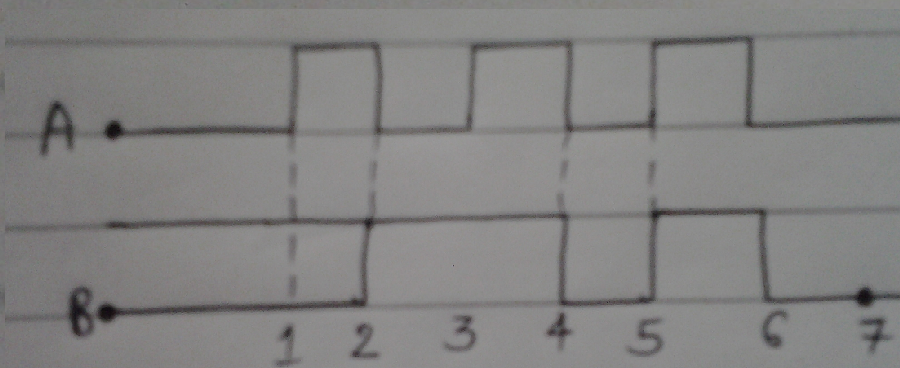 A
B
1 2 3 4 5 6 7